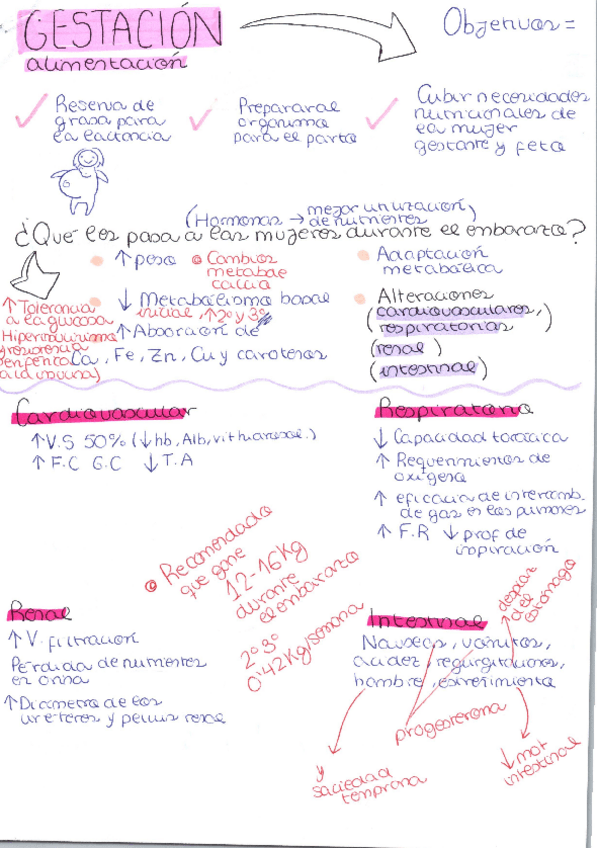 GESTACIÓN
alimentación
Objetivos =
Reserva de
grasa para
la lactancia
Preparar al
organismo
para el parto
Cubrir necesidades
nutricionales de
la mujer
gestante y feto
(Hormonas → mejor utilización
de nutrientes)
¿Qué les pasa a las mujeres durante el embarazo?
↑ Tolerancia
a la glucosa
Hiperinsulinismo
y resistencia
periférica
a la insulina)
↑ peso
Cambios
metabo
calcio
↓ Metabolismo basal
inicial, ↑ 2º y 3º
↑ Absorción de
Ca, Fe, Zn, Cu y carotenos
Adaptación
metabólica
Alteraciones
(cardiovasculares,)
(respiratorias)
(renal)
(intestinal)
Cardiovascular
↑ V.S 50% (↓ hb, Alb, vit hidrosol.)
↑ F.C G.C ↓ T.A
Respiratorio
↓ Capacidad torácica
↑ Requerimientos de
oxígeno
↑ eficacia de intercamb.
de gas en los pulmones
↑ F.R ↓ prof de
inspiración
Recomendado
que gane
12-16Kg
durante
el embarazo
2º 3º
0'42Kg/semana
Renal
↑ V. filtración
Pérdida de nutrientes
en orina
↑ Diámetro de los
uréteres y pelvis renal
Intestinal
Náuseas, vómitos,
acidez, regurgitaciones,
hambre, estreñimiento
desplaz
del
estómago
progesterona
y
saciedad
temprana
↓ mot
intestinal